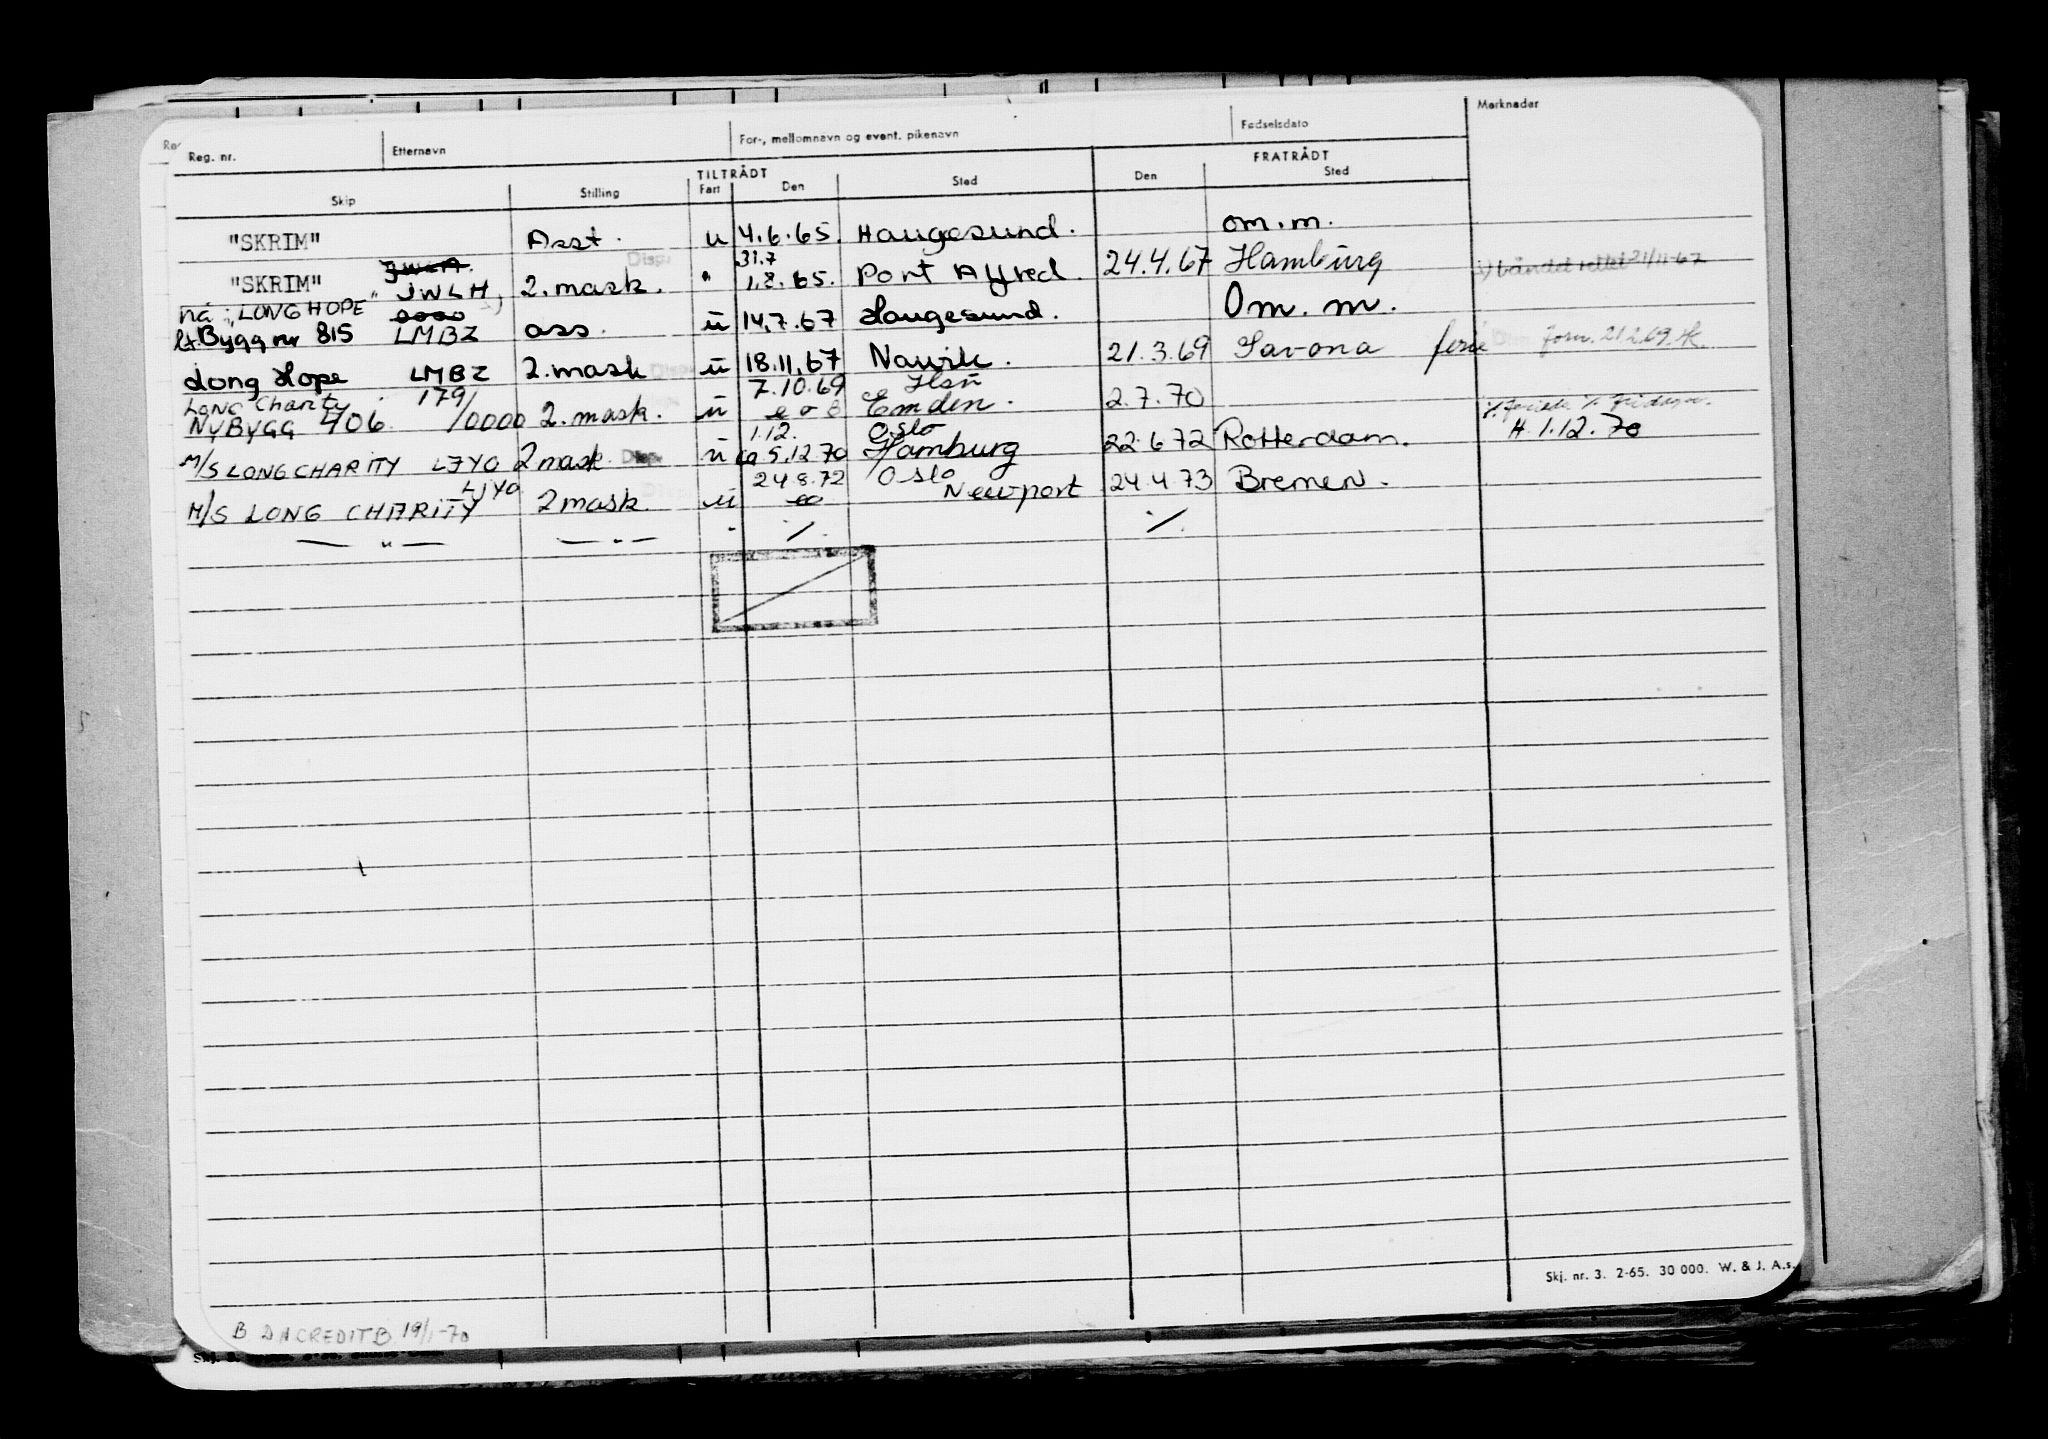 Reg. nr. Etternavn For-, mellomnavn og event. pikenavn Fødselsdato Merknader
TILTRÅDT FRATRÅDT
Skip Stilling Fart Den Sted Den Sted
"SKRIM" Asst. u 4.6.65. Haugesund. om.m.
31.7
"SKRIM" JWLH 2.mask. " 1.8.65. Port Alfred. 24.4.67 Hamburg
nå: "LONG HOPE"
Bygg nr 815 LMBZ ass. ü 14.7.67 Haugesund. Om. m.
Long Hope LMBZ 2.mask ü 18.11.67 Navik. 21.3.69 Savona ferie
Long Charity 179/ 7.10.69
NYBYGG 406. /0000 2.mask. ü Emden. 2.7.70
1.12. Oslo H. 1.12.70
M/S LONG CHARITY LJYO 2 mask. ü 5.12.70 Hamburg 22.6.72 Rotterdam.
LJYO 24.8.72 Oslo
M/S LONG CHARITY 2 mask. ü Newport 24.4.73 Bremen.
— " — — " — " ./. ./.
Skj. nr. 3. 2-65. 30 000. W. & J. A.s.
B DNCREDITB 19/1-70